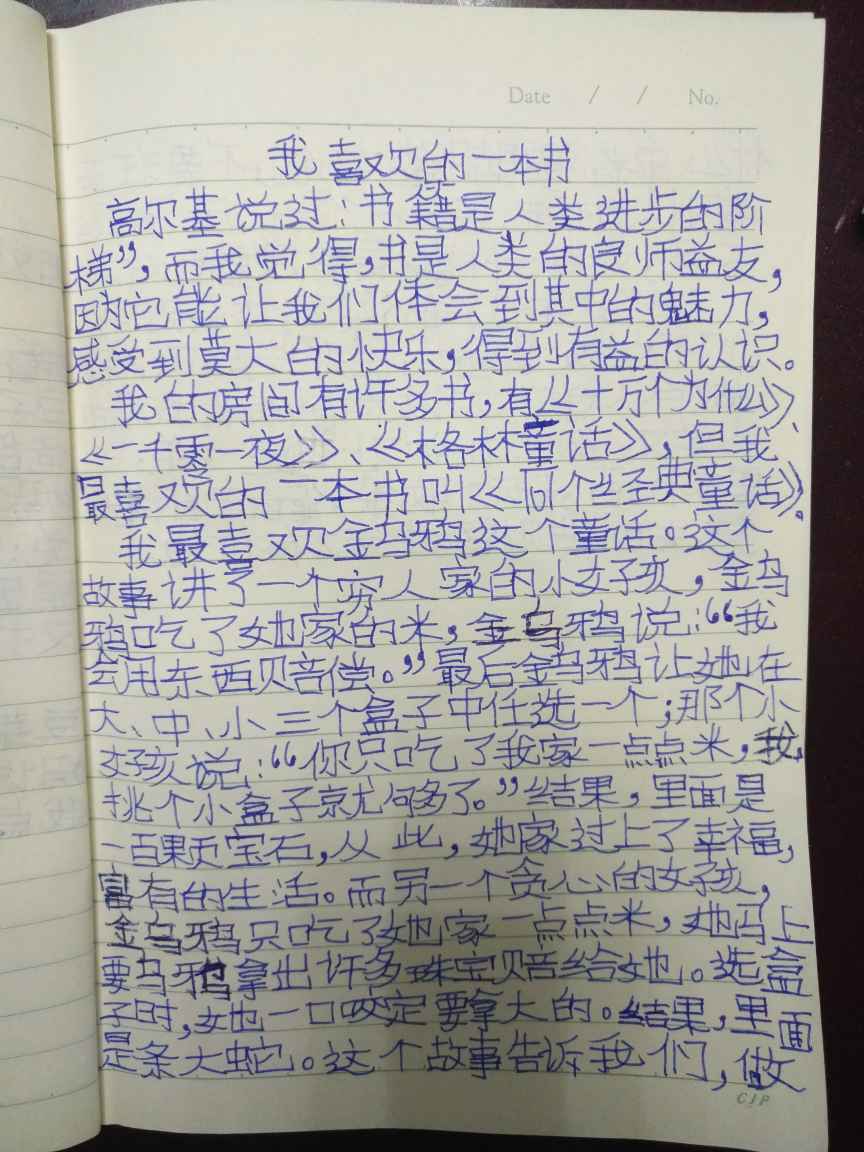 Date / / No.
我喜欢的一本书
高尔基说过:书籍是人类进步的阶
梯”,而我觉得,书是人类的良师益友,
因为它能让我们体会到其中的魅力,
感受到莫大的快乐,得到有益的认识。
我的房间有许多书,有《十万个为什么》、
《一千零一夜》、《格林童话》,但我
最喜欢的一本书叫《百个经典童话》。
我最喜欢金乌鸦这个童话。这个
故事讲了一个穷人家的小女孩,金乌
鸦吃了她家的米,金乌鸦说:“我
会用东西贝音偿。”最后金乌鸦让她在
大、中、小三个盒子中任选一个;那个小
女孩说:“你只吃了我家一点点米,我
挑个小盒子就够了。”结果,里面是
一百颗宝石,从此,她家过上了幸福,
富有的生活。而另一个贪心的女孩,
金乌鸦只吃了她家一点点米,她马上
要乌鸦拿出许多珠宝赔给她。选盒
子时,她一口咬定要拿大的。结果,里面
是条大蛇。这个故事告诉我们,做
CJP